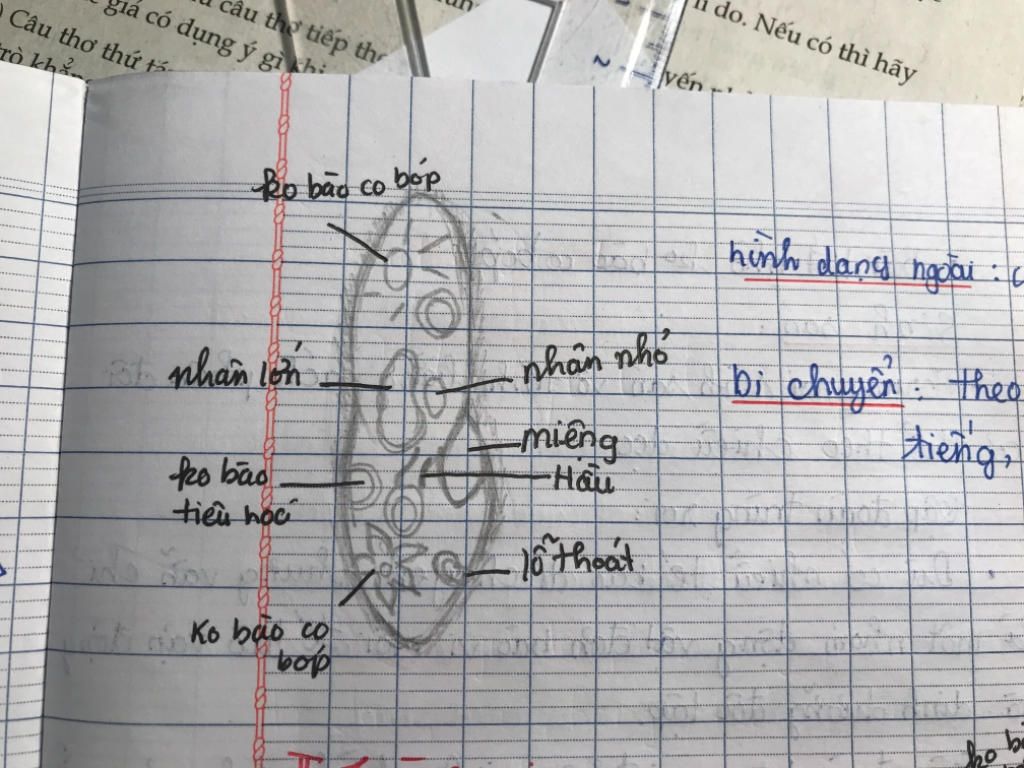 câu thơ tiếp the
giá có dụng ý gì khi
Câu thơ thứ tá
trò khẳng
lí do. Nếu có thì hãy
ko bào co bóp
hình dạng ngoài :
nhân lớn
nhân nhỏ
Di chuyển : theo
miệng
tiến,
ko bào
Hầu
tiêu hóc
lỗ thoát
Ko bào co
bóp
ko